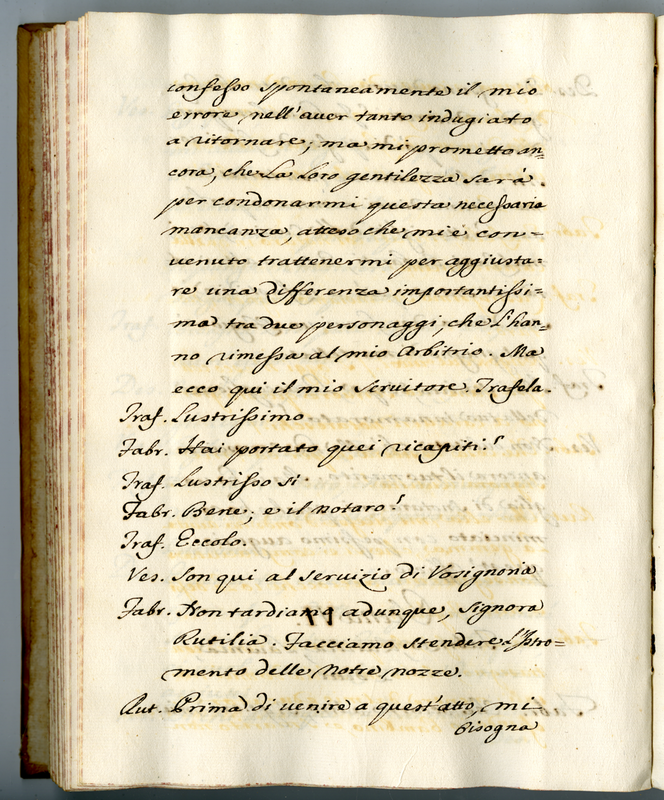 confesso spontaneamente il mio
errore nell'aver tanto indugiato
a ritornare; ma mi prometto an=
cora, che La Loro gentilezza sarà
per condonarmi questa necessaria
mancanza, atteso che mi è con=
venuto trattenermi per aggiusta=
re una differenza importantissi=
ma tra due personaggi, che l'han=
no rimessa al mio Arbitrio. Ma
ecco qui il mio Servitore. Trafela.
Traf. Lustrissimo
Fabr. Hai portato quei ricapiti?
Traf. Lustrisso si.
Fabr. Bene; e il notaro?
Traf. Eccolo.
Ves. Son qui al servizio di Vosignoria
Fabr. Non tardiamo adunque, Signora
Rutilia. Facciamo stendere l'Istro=
mento delle Notre nozze.
Rut. Prima di venire a quest'atto, mi
bisogna